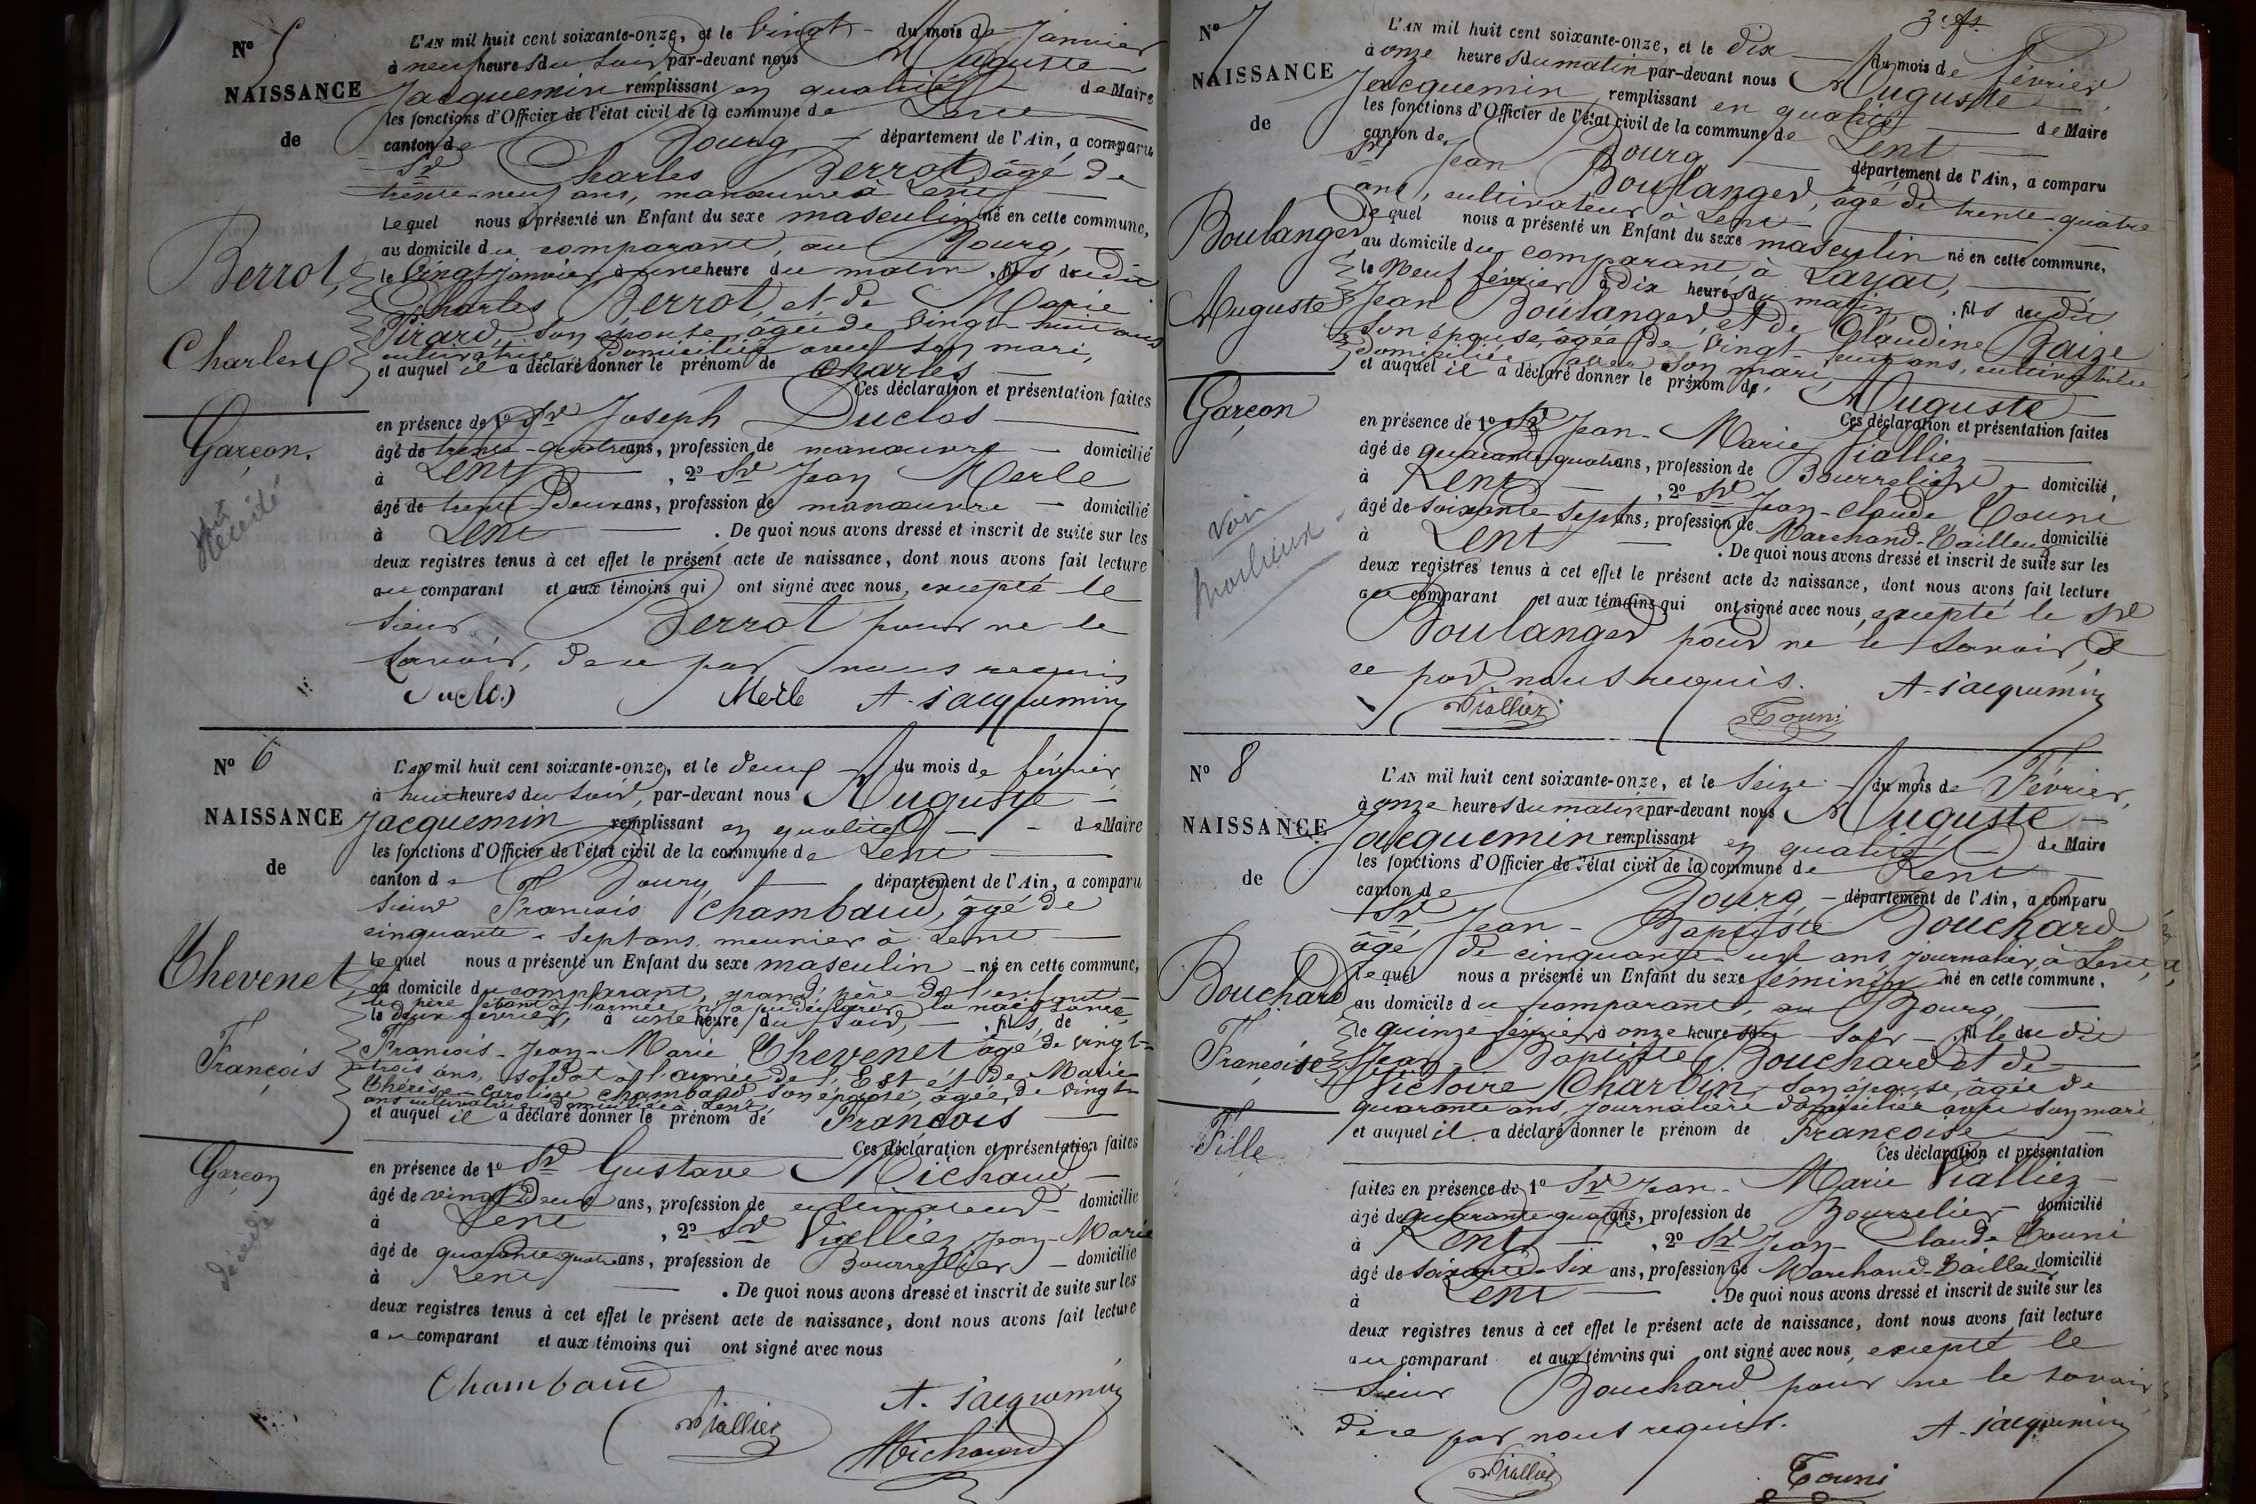 N° 5
NAISSANCE
de
Berrot,
Charles
Garçon.
L'AN mil huit cent soixante-onze, et le vingt du mois de Janvier
à neuf heures du soir par-devant nous Auguste
Jacquemin remplissant en qualité de Maire
les fonctions d'Officier de l'état civil de la commune de Lent
canton de Bourg département de l'Ain, a comparu
Sr Charles Berrot, âgé de
trente-neuf ans, manœuvre à Lent
Lequel nous a présenté un Enfant du sexe masculin né en cette commune,
au domicile du comparant, au Bourg,
le vingt janvier à une heure du matin, fils du dit
Charles Berrot, et de Marie
Pirard, son épouse, âgée de vingt-huit ans
cultivatrice domiciliée avec son mari,
et auquel il a déclaré donner le prénom de Charles
Ces déclaration et présentation faites
en présence de 1° Sr Joseph Duclos
âgé de trente-quatre ans, profession de manœuvre domicilié
à Lent, 2° Sr Jean Merle
âgé de trente-deux ans, profession de manœuvre domicilié
à Lent. De quoi nous avons dressé et inscrit de suite sur les
deux registres tenus à cet effet le présent acte de naissance, dont nous avons fait lecture
au comparant et aux témoins qui ont signé avec nous, excepté le
sieur Berrot pour ne le
savoir, de ce par nous requis
Duclos Merle A. Jacquemin
N° 6
NAISSANCE
de
Thevenet
François
Garçon
décédé
L'AN mil huit cent soixante-onze, et le deux du mois de février
à huit heures du soir, par-devant nous Auguste
Jacquemin remplissant en qualité de Maire
les fonctions d'Officier de l'état civil de la commune de Lent
canton de Bourg département de l'Ain, a comparu
sieur François Chambaud, âgé de
cinquante-sept ans, meunier à Lent
Lequel nous a présenté un Enfant du sexe masculin né en cette commune,
au domicile du comparant, grand père de l'enfant
le père étant à l'armée n'a pu déclarer la naissance,
le deux février, à une heure du soir, fils de
François-Jean-Marie Thevenet âgé de vingt-
trois ans, soldat à l'armée de l'Est et de Marie
Thérèse-Caroline Chambaud son épouse, âgée de vingt
ans cultivatrice domiciliée à Lent,
et auquel il a déclaré donner le prénom de François
Ces déclaration et présentation faites
en présence de 1° Sr Gustave Michaud
âgé de vingt-deux ans, profession de cultivateur domicilié
à Lent, 2° Sr Viallier Jean-Marie
âgé de quarante-quatre ans, profession de Bourrelier domicilié
à Lent. De quoi nous avons dressé et inscrit de suite sur les
deux registres tenus à cet effet le présent acte de naissance, dont nous avons fait lecture
au comparant et aux témoins qui ont signé avec nous
Chambaud A. Jacquemin
Viallier Michaud
3e fs.
N° 7
NAISSANCE
de
Boulanger
Auguste
Garçon
voir
L'AN mil huit cent soixante-onze, et le dix du mois de février
à onze heures du matin par-devant nous Auguste
Jacquemin remplissant en qualité de Maire
les fonctions d'Officier de l'état civil de la commune de Lent
canton de Bourg département de l'Ain, a comparu
Sr Jean Boulanger, âgé de trente-quatre
ans, cultivateur à Lent
Lequel nous a présenté un Enfant du sexe masculin né en cette commune,
au domicile du comparant, à Layat,
le neuf février à dix heures du matin, fils du dit
Jean Boulanger, et de Claudine Baize
son épouse, âgée de vingt-neuf ans, cultivatrice
domiciliée avec son mari,
et auquel il a déclaré donner le prénom de Auguste
Ces déclaration et présentation faites
en présence de 1° Sr Jean-Marie Viallier
âgé de quarante-quatre ans, profession de Bourrelier domicilié,
à Lent, 2° Sr Jean-Claude Touni
âgé de soixante-sept ans, profession de Marchand-Tailleur domicilié
à Lent. De quoi nous avons dressé et inscrit de suite sur les
deux registres tenus à cet effet le présent acte de naissance, dont nous avons fait lecture
au comparant et aux témoins qui ont signé avec nous, excepté le Sr
Boulanger pour ne le savoir, de
ce par nous requis. A. Jacquemin
Viallier Touni
N° 8
NAISSANCE
de
Bouchard
Françoise
Fille
L'AN mil huit cent soixante-onze, et le seize du mois de Février,
à onze heures du matin par-devant nous Auguste
Jacquemin remplissant en qualité de Maire
les fonctions d'Officier de l'état civil de la commune de Lent
canton de Bourg département de l'Ain, a comparu
Sr Jean-Baptiste Bouchard
âgé de cinquante-un ans, journalier à Lent,
Lequel nous a présenté un Enfant du sexe féminin né en cette commune,
au domicile du comparant, au Bourg,
le quinze février à onze heures du soir fille du dit
Jean-Baptiste Bouchard et de
Victoire Charvin, son épouse, âgée de
quarante ans, journalière domiciliée avec son mari
et auquel il a déclaré donner le prénom de Françoise
Ces déclaration et présentation
faites en présence de 1° Sr Jean-Marie Viallier
âgé de quarante-quatre ans, profession de Bourrelier domicilié
à Lent, 2° Sr Jean-Claude Touni
âgé de soixante-six ans, profession de Marchand-Tailleur domicilié
à Lent. De quoi nous avons dressé et inscrit de suite sur les
deux registres tenus à cet effet le présent acte de naissance, dont nous avons fait lecture
au comparant et aux témoins qui ont signé avec nous, excepté le
sieur Bouchard pour ne le savoir,
de ce par nous requis. A. Jacquemin
Viallier Touni